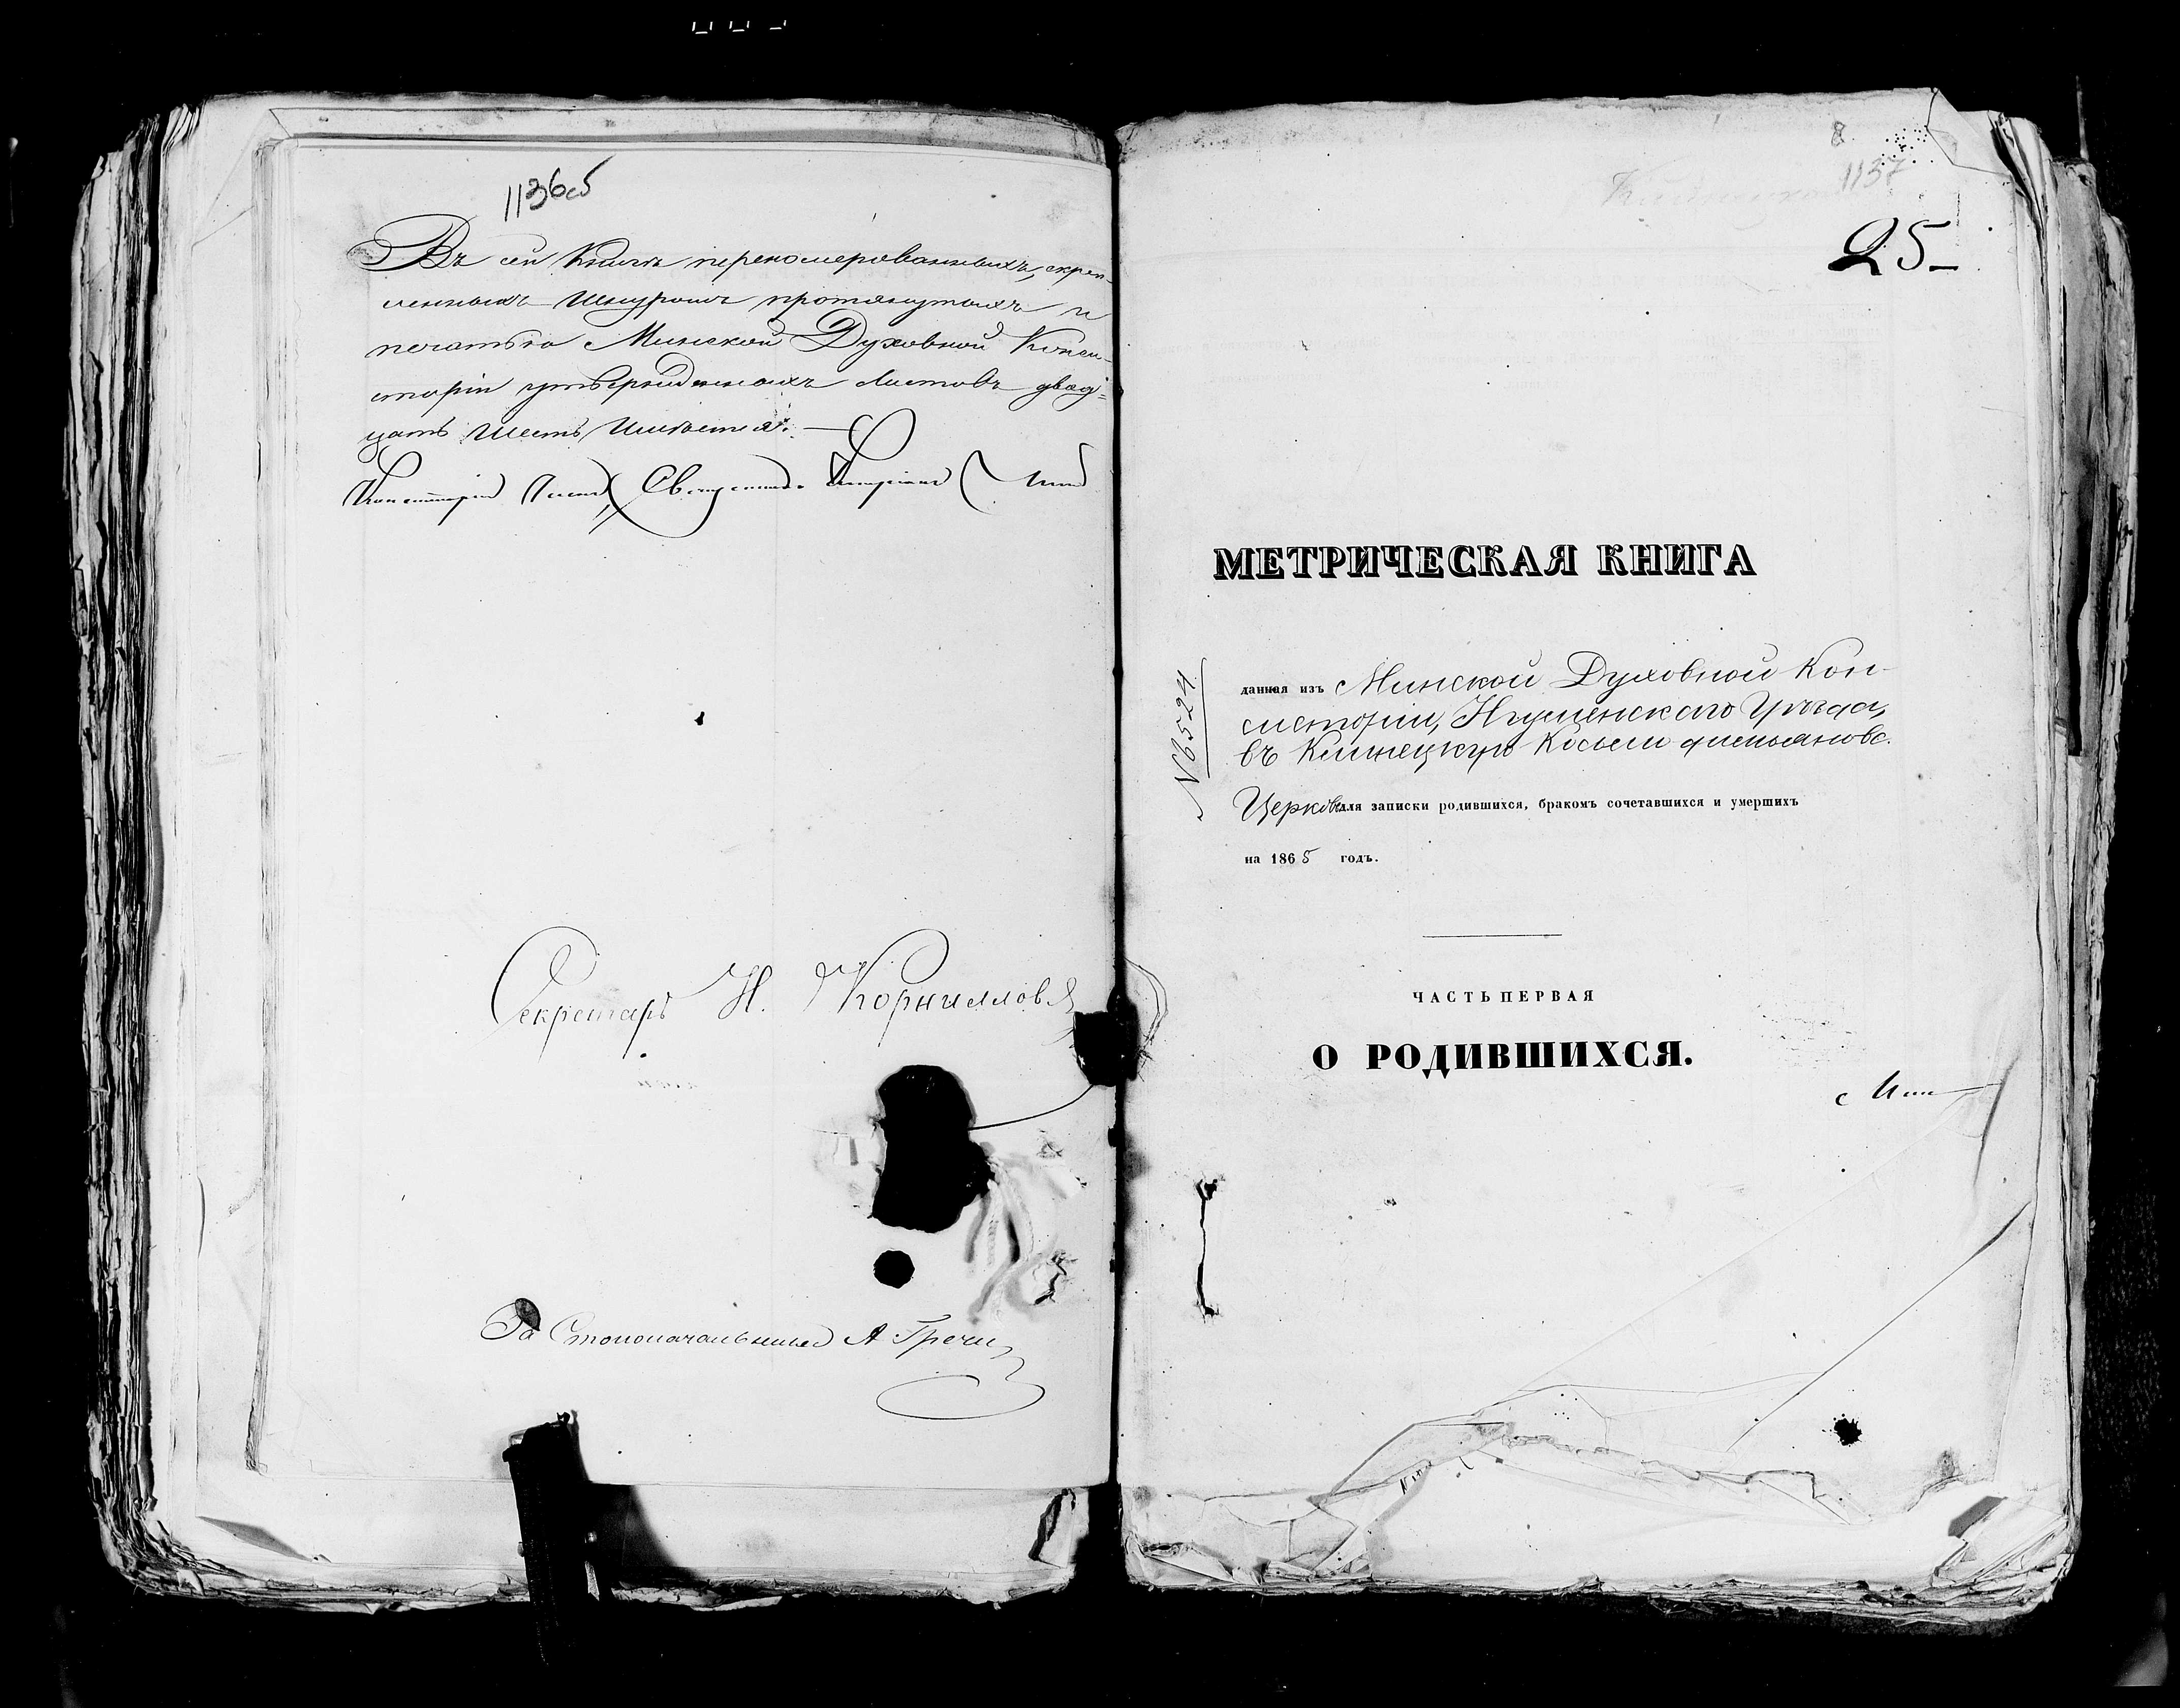 1136об
Въ сей Книгѣ перепомерованныхъ, скреп-
ленныхъ шнуромъ протянутыхъ и
печатью Минской Духовной Конси-
сторіи утвержденныхъ листовъ двад=
цать шесть имѣется. —
Консисторіи Членъ, Священникъ
Секретарь Н. Корниловъ
За Столоначальника А Гречи
8
1137
25-
МЕТРИЧЕСКАЯ КНИГА
№6524
данная изъ Минской Духовной Кон-
систоріи, Игуменскаго Уѣзда,
въ Клинецкую Косьмо Демьяновс.
Церковь для записки родившихся, бракомъ сочетавшихся и умершихъ
на 1865 годъ.
ЧАСТЬ ПЕРВАЯ
О РОДИВШИХСЯ.